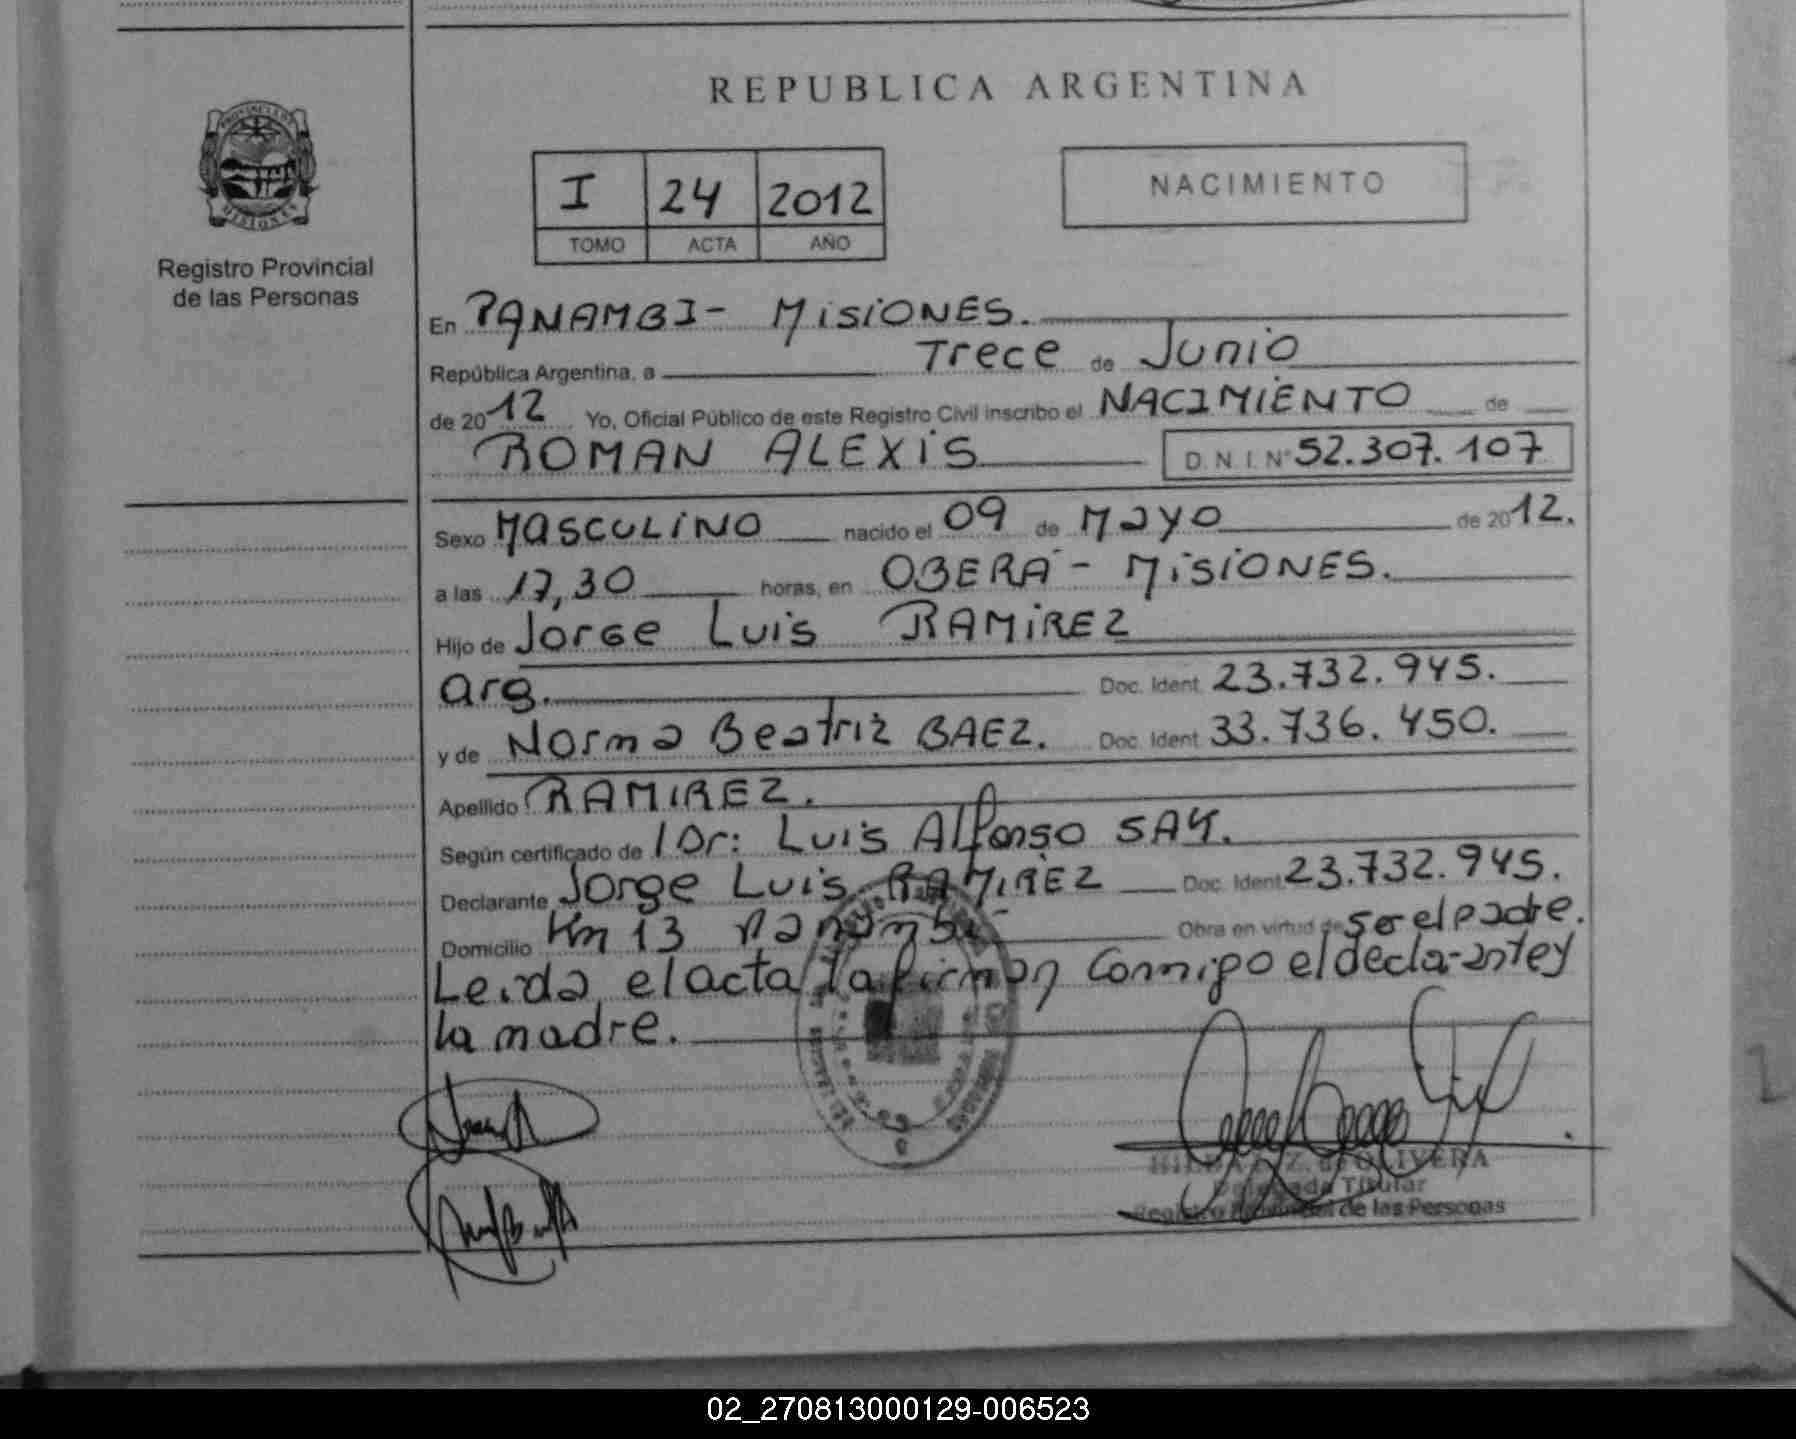 REPUBLICA ARGENTINA
PROVINCIA DE
MISIONES
Registro Provincial
de las Personas
I 24 2012
TOMO ACTA AÑO
NACIMIENTO
En PANAMBI - MISIONES.
República Argentina, a Trece de Junio
de 2012 Yo, Oficial Público de este Registro Civil inscribo el NACIMIENTO de
ROMAN ALEXIS D.N.I. N° 52.307.107
Sexo MASCULINO nacido el 09 de MAYO de 2012.
a las 17,30 horas, en OBERÁ - MISIONES.
Hijo de Jorge Luis RAMIREZ
arg. Doc. Ident. 23.732.945.
y de Norma Beatriz BAEZ. Doc. Ident. 33.736.450.
Apellido RAMIREZ.
Según certificado de / Dr: Luis Alfonso SAY.
Declarante Jorge Luis RAMIREZ Doc. Ident. 23.732.945.
Domicilio Km 13 Panambí Obra en virtud de ser el padre.
Leida el acta la firman conmigo el declarante y
la madre.
de OLIVERA
Delegada Titular
Registro Provincial de las Personas
02_270813000129-006523